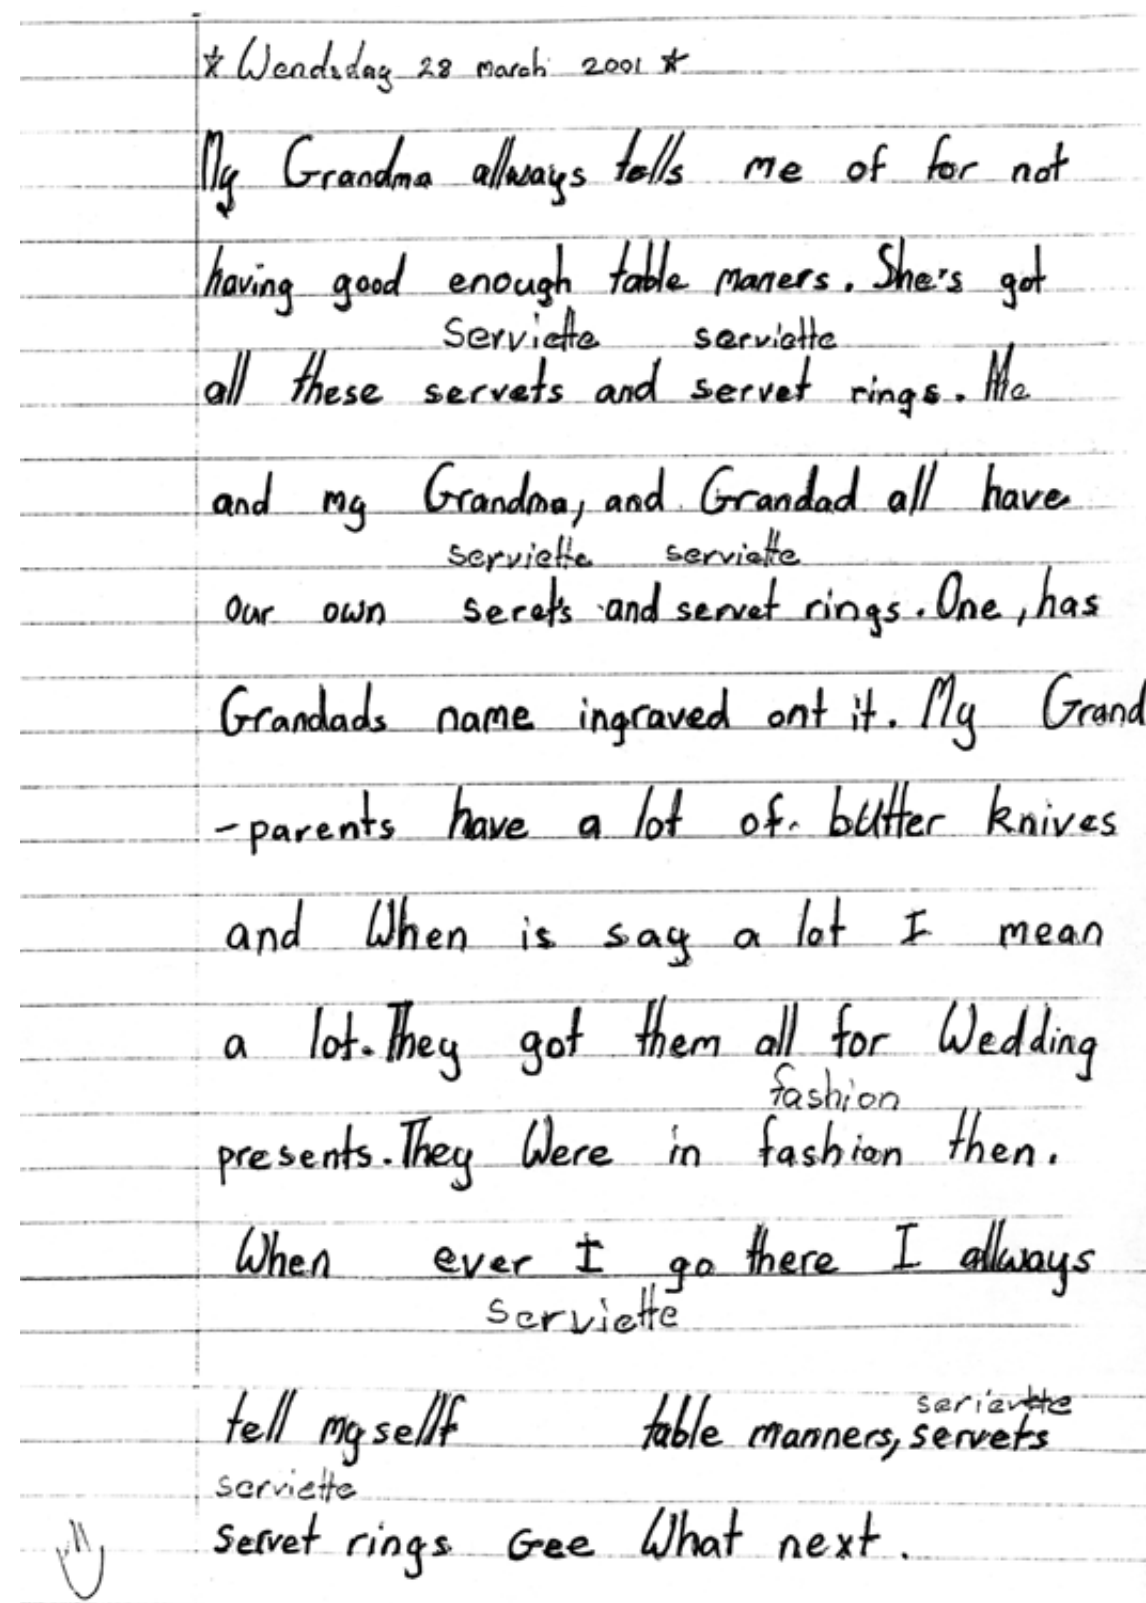 * Wendsday 28 march 2001 *
My Grandma allways tells me of for not
having good enough table maners. She's got
Serviette serviette
all these servets and servet rings. Me
and my Grandma, and Grandad all have
serviette serviette
our own serets and servet rings. One, has
Grandads name ingraved ont it. My Grand
-parents have a lot of butter knives
and When is say a lot I mean
a lot. They got them all for Wedding
fashion
presents. They Were in fashion then.
When ever I go there I allways
Serviette
tell my sellf table manners, servets
serievtte
serviette
servet rings Gee What next.